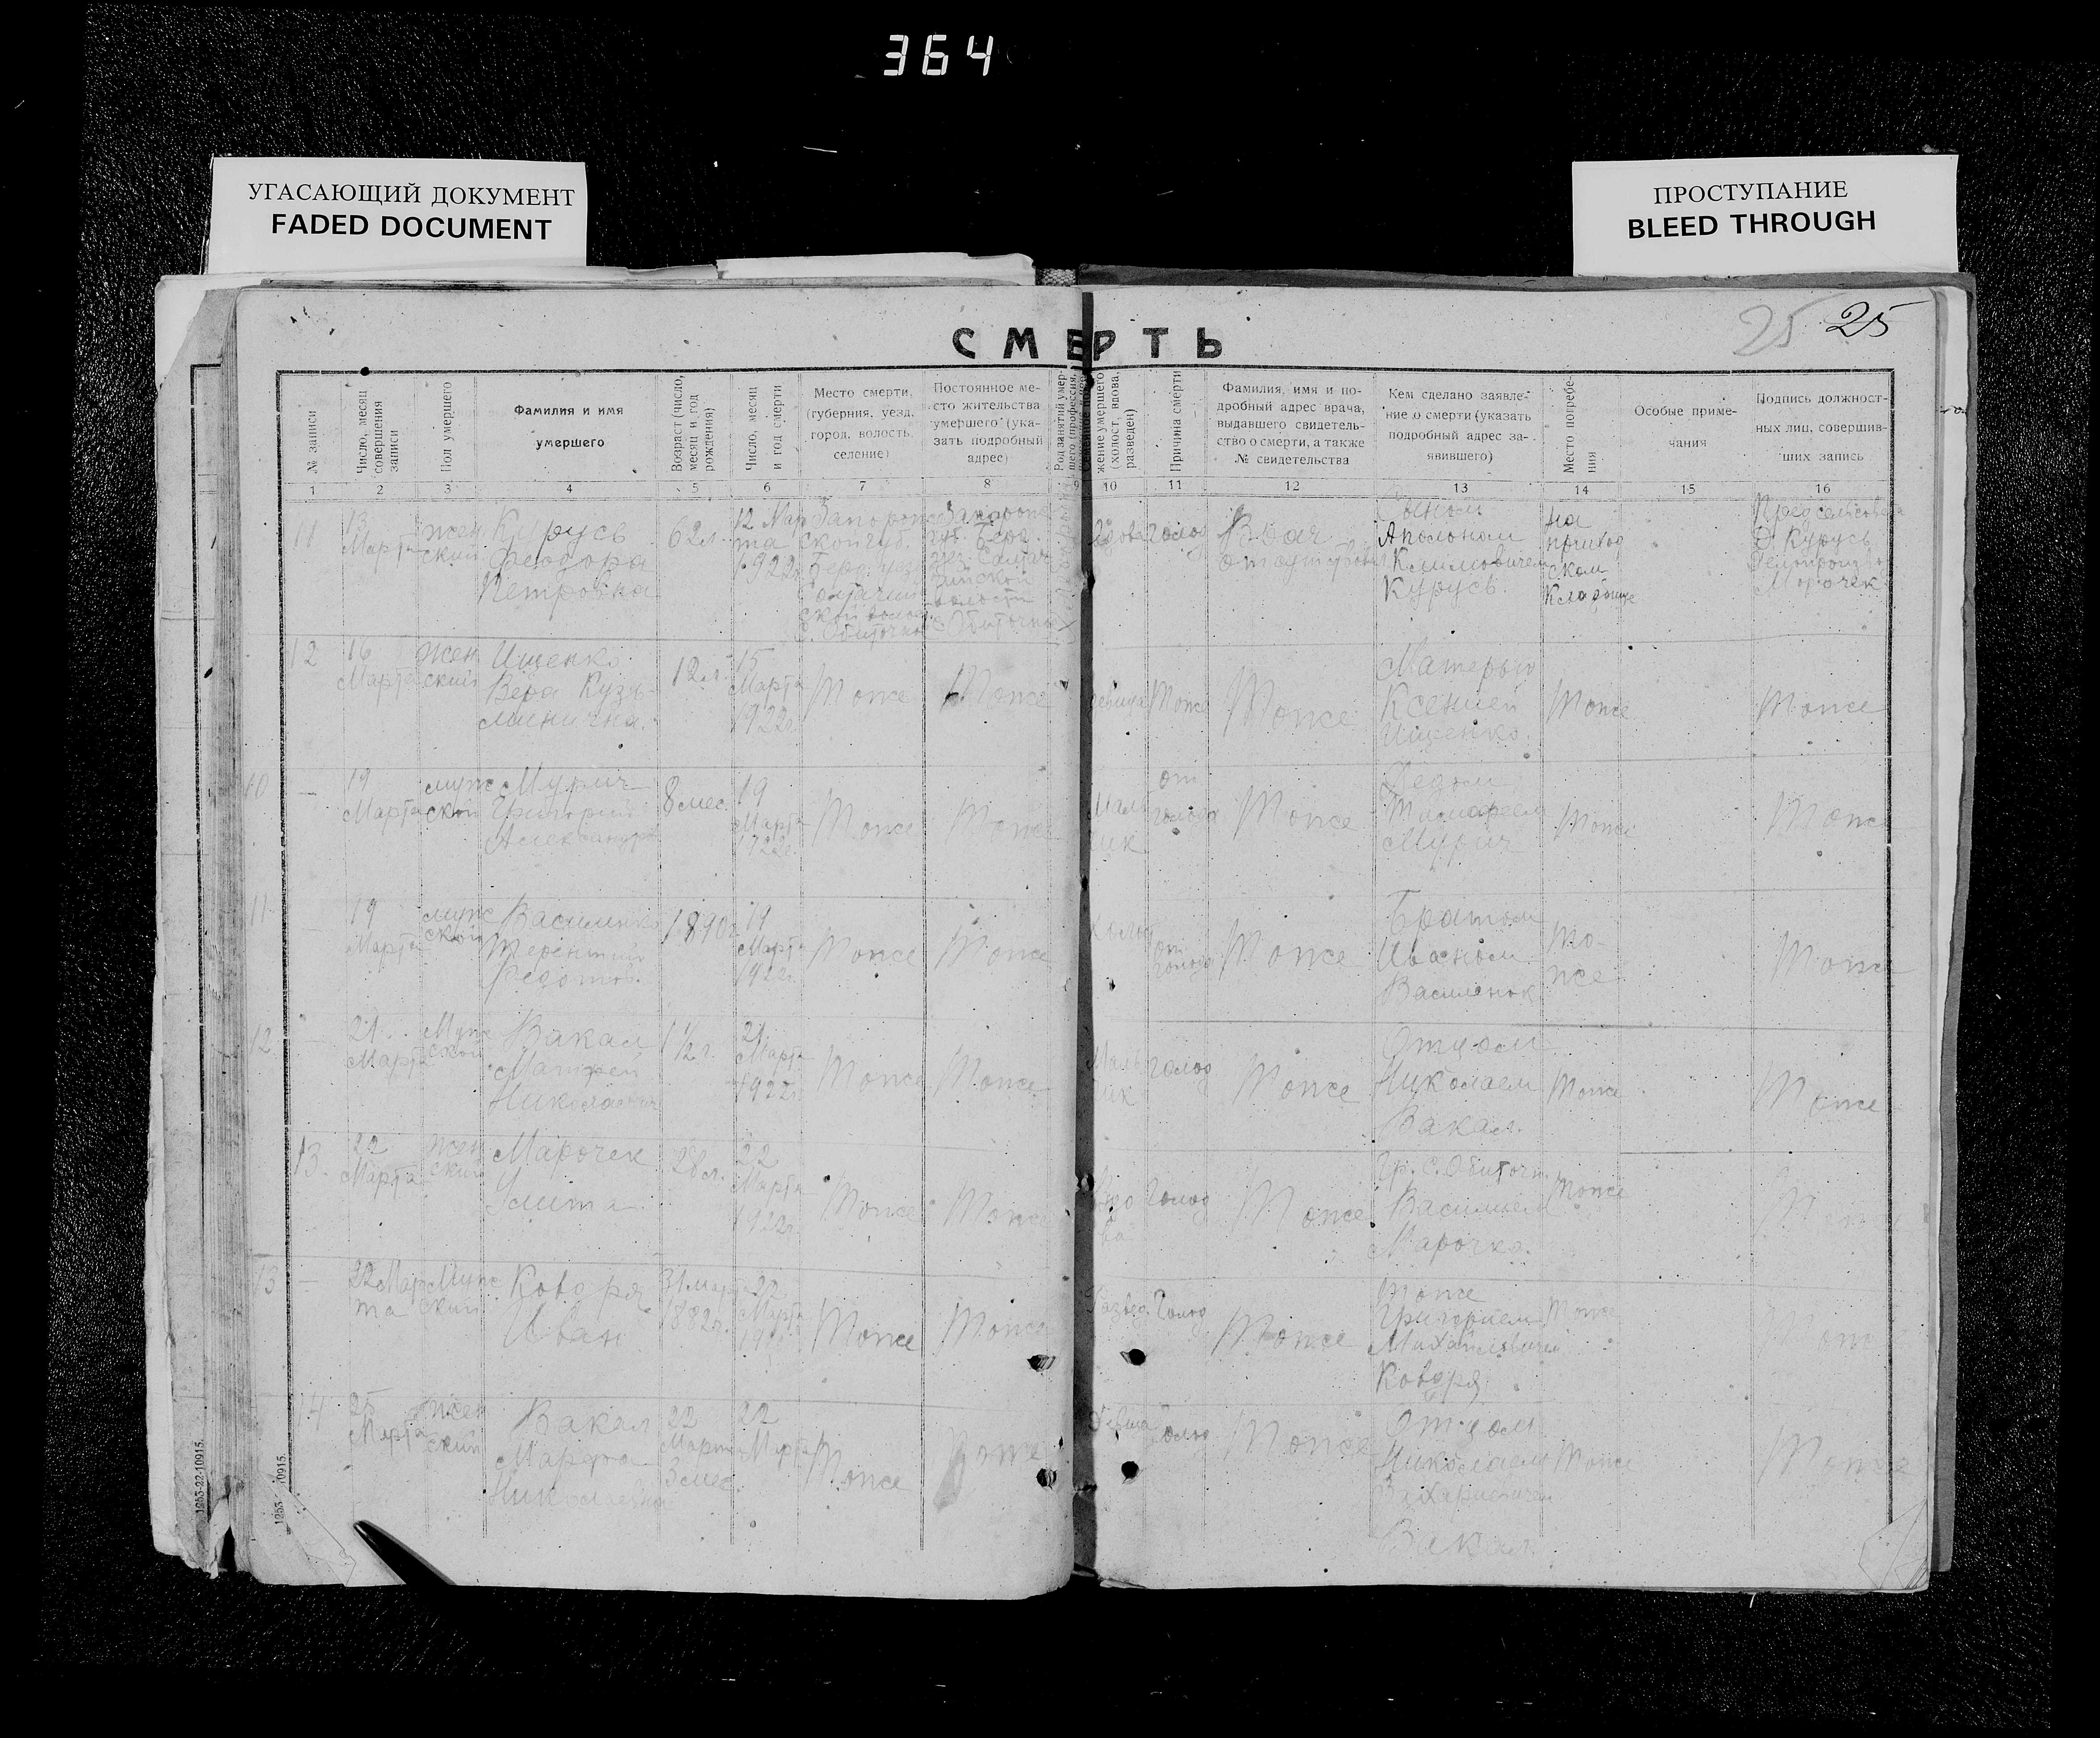 364
УГАСАЮЩИЙ ДОКУМЕНТ
FADED DOCUMENT
ПРОСТУПАНИЕ
BLEED THROUGH
25 25
СМЕРТЬ
№ записи
Число, месяц совершения записи
Пол умершего
Фамилия и имя
умершего
Возраст (число, месяц и год рождения)
Число, месяц и год смерти
Место смерти,
(губерния, уезд,
город, волость,
селение)
Постоянное ме-
сто жительства
умершего (ука-
зать подробный
адрес)
Род занятий умер-
шего (профессия,
жение умершего
(холост, вдова,
разведен)
Причина смерти
Фамилия, имя и по-
дробный адрес врача,
выдавшего свидетель-
ство о смерти, а также
№ свидетельства
Кем сделано заявле-
ние о смерти (указать
подробный адрес за-
явившего)
Место погребе-
ния
Особые приме-
чания
Подпись должност-
ных лиц, совершив-
ших запись
1 2 3 4 5 6 7 8 9 10 11 12 13 14 15 16
11
13
Марта
Жен
ский
Курусь
Феодора
Петровна
62 л.
12 Мар
та
1922г.
Запорож
ской губ.
Берд. уез.
волос
с. Обиточное
Запорож
губ. Берд.
волости
с. Обиточное
Вдова
Голод
Врач
отсутствовал
Сыном
Аполоном
Климовичем
Курусь
на
приход
ском
Кладбище
Предсельсовета
Курусь
Марочек
12
16
Марта
Жен
ский
Ищенко
Вера Кузь-
минична.
12 л.
15
Марта
1922г.
Тоже
Тоже
девица
Тоже
Тоже
Матерью
Ксенией
Ищенко.
Тоже
Тоже
10 —
19
Марта
муж
ской
Мурич
Григорий
Александр
8 мес
19
Марта
1922г.
Тоже
Тоже
Маль
чик
от
голода
Тоже
Дедом
Тимофеем
Мурич
Тоже
Тоже
11 —
19
Марта
муж
ской
Василенко
Терентий
Федотов.
1890г
19
Март
1922г.
Тоже
Тоже
Холост
от
голода
Тоже
Братом
Иваном
Василенок
То-
же
Тоже
12 —
21
Марта
Муж
ской
Вакал
Матфей
Николаевич
1½ г.
21
Марта
1922г.
Тоже
Тоже
Маль
чик
голод
Тоже
Отцом
Николаем
Вакал.
Тоже
Тоже
13.
22
Марта
Жен
ский
Марочек
Улита
28 л.
22
Марта
1922г.
Тоже
Тоже
Вдо
ва
Голод
Тоже
Гр. с. Обиточн.
Василием
Марочко.
Тоже
13 —
22 Мар
та
Муж
ский
Коворя
Иван
31 март
1882г.
22
Марта
Тоже
Тоже
Развед.
Голод
Тоже
Тоже
Григорием
Михайловичем
Коворя
Тоже
14
25
Марта
Жен
ский
Вакал
Марфа
Николаевна
22
Март
3 мес.
22
Марта
Тоже
Тоже
Девица
Голод
Тоже
Отцом
Николаем
Захаривичем
Вакал.
Тоже
Тоже
1253-22-10915.